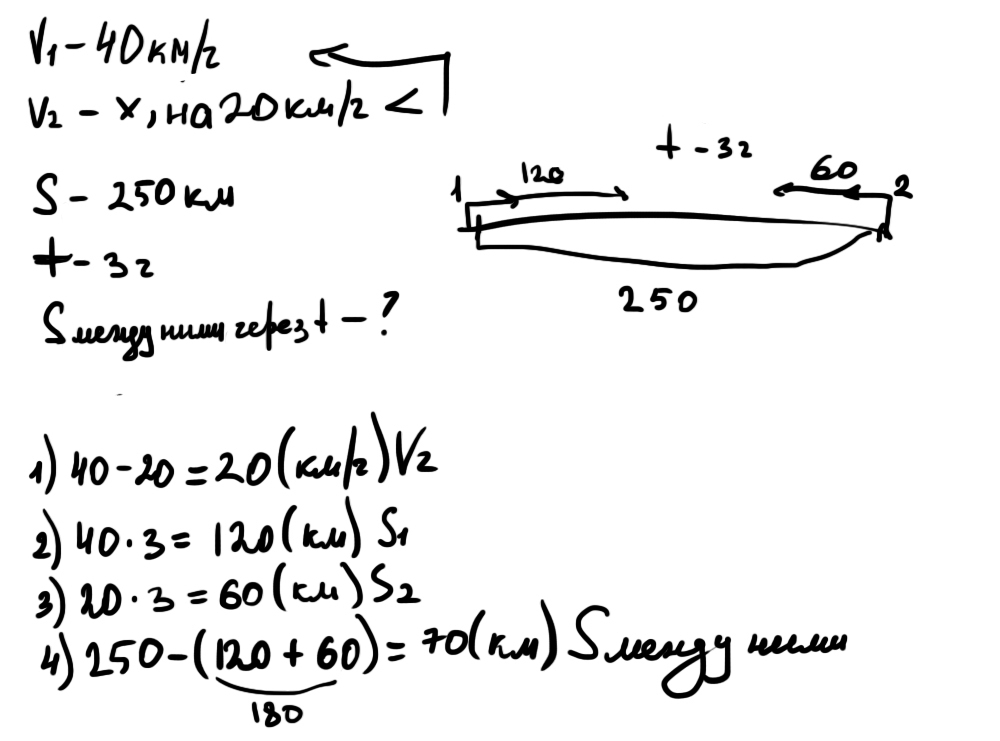 V₁ - 40 км/ч
V₂ - x, на 20 км/ч <
S - 250 км
t - 3 ч
S между ними через t - ?
t - 3 ч
1 120 60 2
250
1) 40 - 20 = 20 (км/ч) V₂
2) 40 · 3 = 120 (км) S₁
3) 20 · 3 = 60 (км) S₂
4) 250 - (120 + 60) = 70 (км) S между ними
180